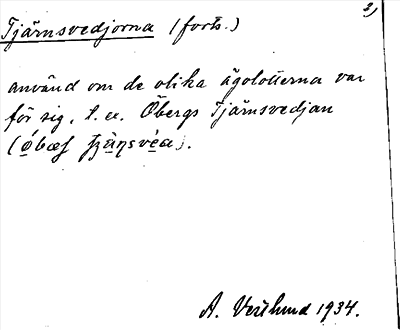 2)
Tjärnsvedjorna (forts.)
använd om de olika ägolotterna var
för sig, t. ex. Öbergs Tjärnsvedjan
A. Westlund 1934.